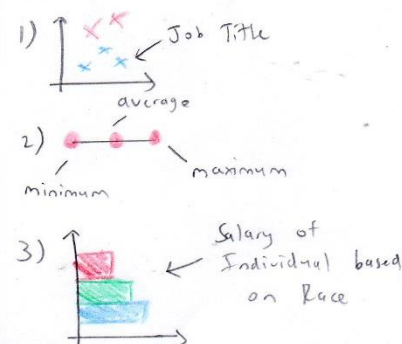 1)
Job Title
average
2)
minimum
maximum
3)
Salary of
Individual based
on Race